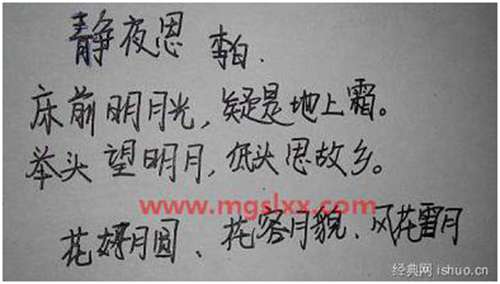 静夜思 李白.
床前明月光,疑是地上霜。
举头望明月,低头思故乡。
www.mgslxx.com
花好月圆、花容月貌、风花雪月
经典网 ishuo.cn